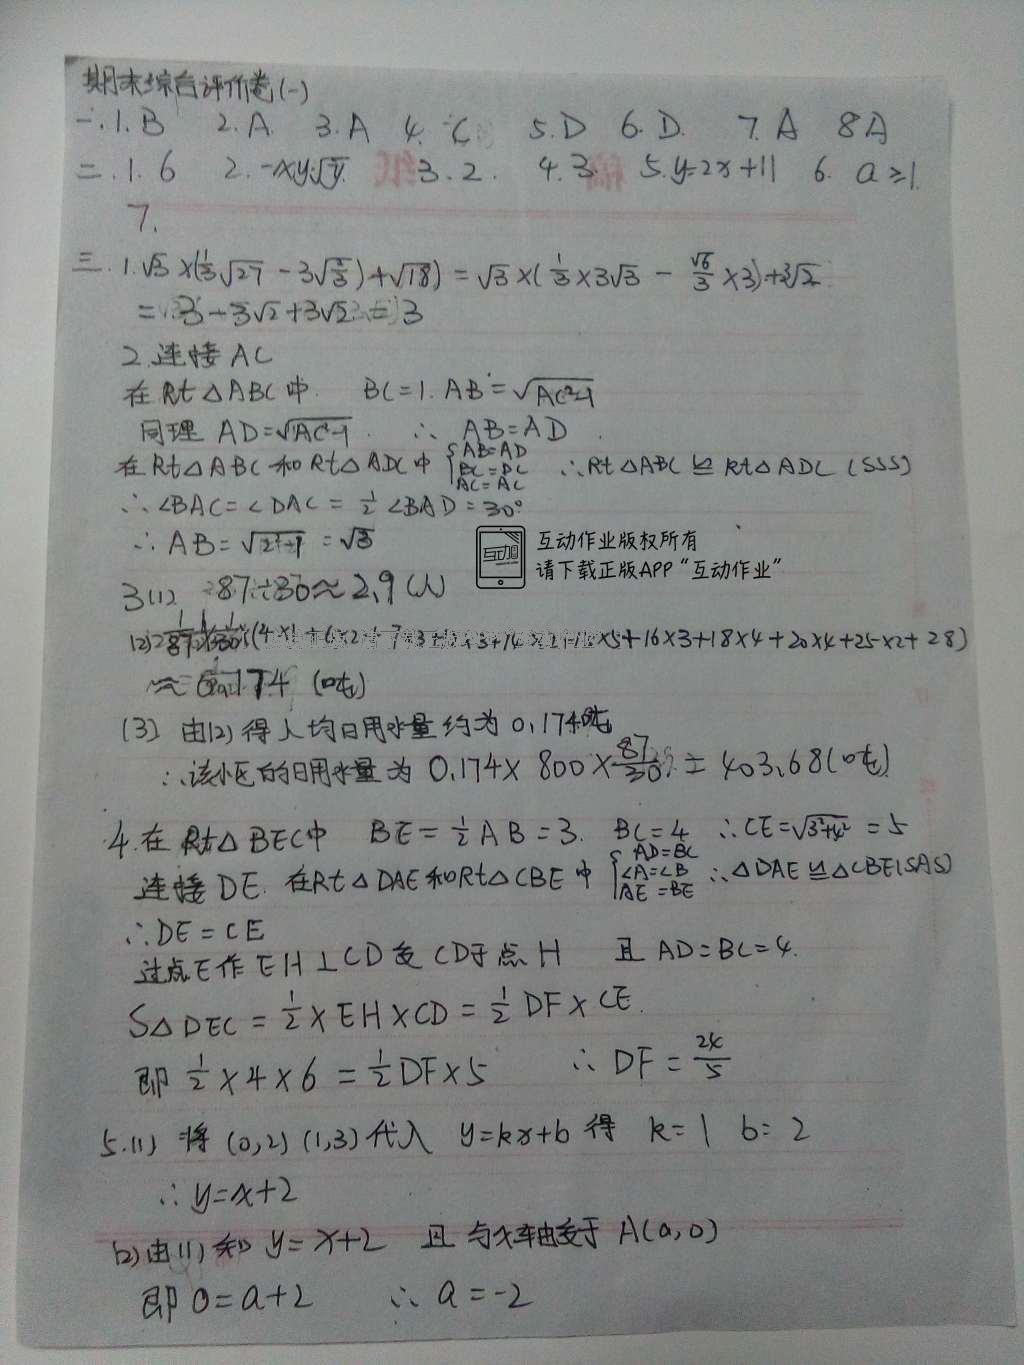 期末综合评价卷(一)
一.1.B 2.A. 3.A 4.C 5.D 6.D. 7.A 8A
二.1.6 2.-xy√y. 3.2. 4.3. 5.y=2x+11 6. a≥1.
7.
三.1.√3×(1/3√27-3√(2/3))+√18) =√3×(1/3×3√3-√6/3×3)+3√2
=3-3√2+3√2=3
2.连接AC
在Rt△ABC中. BC=1. AB=√(AC²-1)
同理 AD=√(AC²-1). ∴ AB=AD.
在Rt△ABC和Rt△ADC中 {AB=AD BC=DC AC=AC ∴Rt△ABC≌Rt△ADC(SSS)
∴∠BAC=∠DAC=1/2∠BAD=30°
∴AB=√(2²-1)=√3
互动作业版权所有
请下载正版APP“互动作业”
3(1) 87÷30≈2.9(人)
×3+14×2+15×5+16×3+18×4+20×4+25×2+28)
≈0.174 (吨)
(3) 由(2)得人均日用水量约为0.174吨
∴该小区的日用水量为 0.174×800×87/30=403.68(吨)
4.在Rt△BEC中 BE=1/2AB=3. BC=4 ∴CE=√(3²+4²)=5
连接DE. 在Rt△DAE和Rt△CBE中 {AD=BC ∠A=∠B AE=BE ∴△DAE≌△CBE(SAS)
∴DE=CE
过点E作EH⊥CD交CD于点H 且AD=BC=4.
S△DEC=1/2×EH×CD=1/2DF×CE.
即1/2×4×6=1/2DF×5 ∴DF=24/5
5.(1) 将(0,2)(1,3)代入 y=kx+b得 k=1 b=2
∴y=x+2
(2)由(1)知y=x+2 且与x轴交于A(a,0)
即0=a+2 ∴a=-2